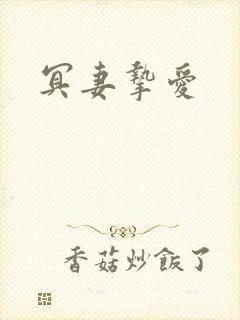 冥妻摯愛
香菇炒飯了